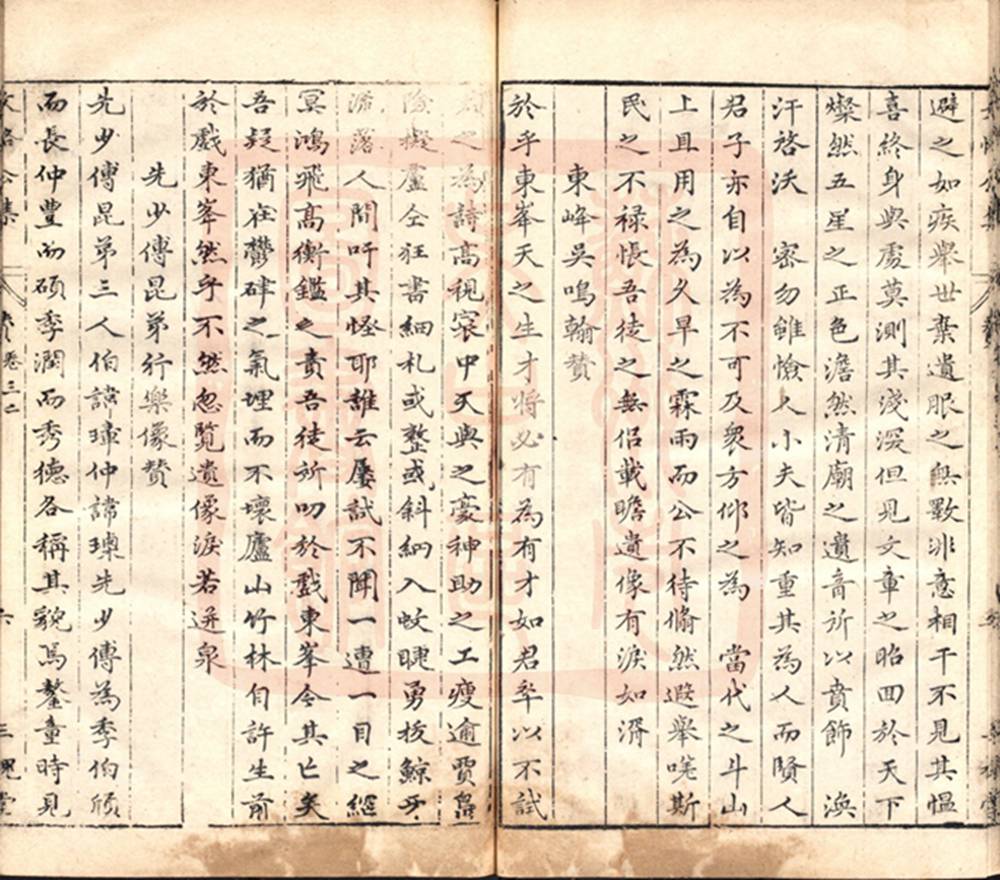 避之如疾舉世棄遺眼之無斁非意相干不見其愠
喜終身與處莫測其淺深但見文章之昭回於天下
燦然五星之正色澹然清廟之遺音所以賁飾　渙
汗啓沃　密勿雖憸人小夫皆知重其為人而賢人
君子亦自以為不可及衆方仰之為　當代之斗山
上且用之為久旱之霖雨而公不待翛然遐舉嗟斯
民之不禄悵吾徒之無侣載瞻遺像有淚如溽
東峰吳鳴翰贊
於乎東峯天之生才將必有為有才如君卒以不試
之為詩高視寰中天與之豪神助之工瘦逾賈島
險擬盧仝狂書細札或整或斜細入蚊睫勇拔鯨牙
流落人間吁其怪耶誰云屢試不聞一遭一目之經
冥鴻飛高衡鑑之責吾徒所叨於戲東峯今其亡矣
吾疑猶在鬱硉之氣埋而不壞廬山竹林自許生前
於戲東峯然乎不然忽覽遺像淚若迸泉
先少傅昆弟行樂像贊
先少傅昆弟三人伯諱璋仲諱璞先少傅為季伯頎
而長仲豐而碩季潤而秀德各稱其貌焉鏊童時見
文恪公集
卷三二
六
三槐堂